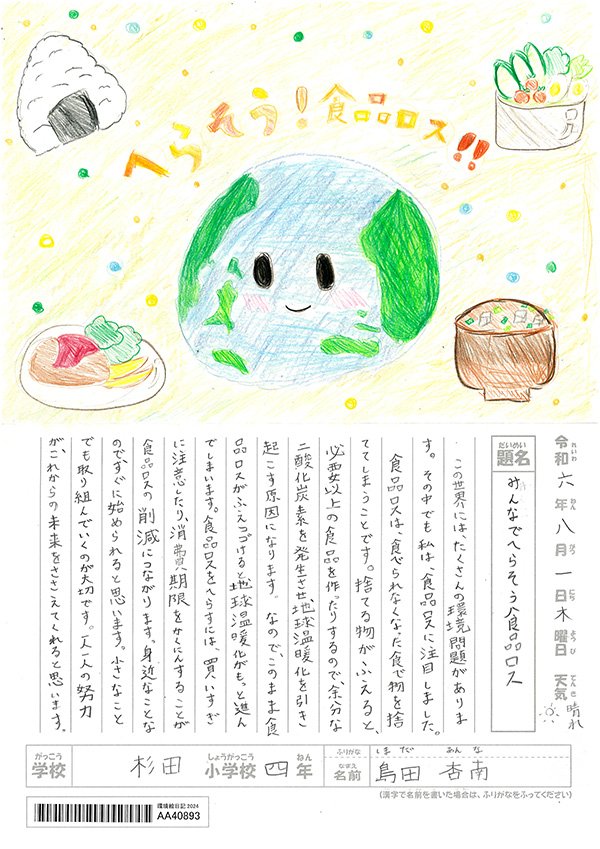 へらそう！食品ロス!!
令和六年八月一日木曜日 天気 晴れ
れいわ ねん がつ にち ようび てんき
だいめい
題名
みんなでへらそう食品ロス
この世界には、たくさんの環境問題がありま
す。その中でも私は、食品ロスに注目しました。
食品ロスは、食べられなくなった食べ物を捨
ててしまうことです。捨てる物がふえると、
必要以上の食品を作ったりするので、余分な
二酸化炭素を発生させ、地球温暖化を引き
起こす原因になります。なのでこのまま食
品ロスがふえつづけると、地球温暖化がもっと進ん
でしまいます。食品ロスをへらすには、買いすぎ
に注意したり、消費期限をかくにんすることが
食品ロスの削減につながります。身近なことな
のですぐに始められると思います。小さなこと
でも取り組んでいくのが大切です。一人一人の努力
が、これからの未来をささえてくれると思います。
がっこう しょうがっこう ねん
学校 杉田 小学校 四年
ふりがな しまだ あんな
なまえ
名前 島田 杏南
(漢字で名前を書いた場合は、ふりがなをふってください)
環境絵日記 2024
AA40893